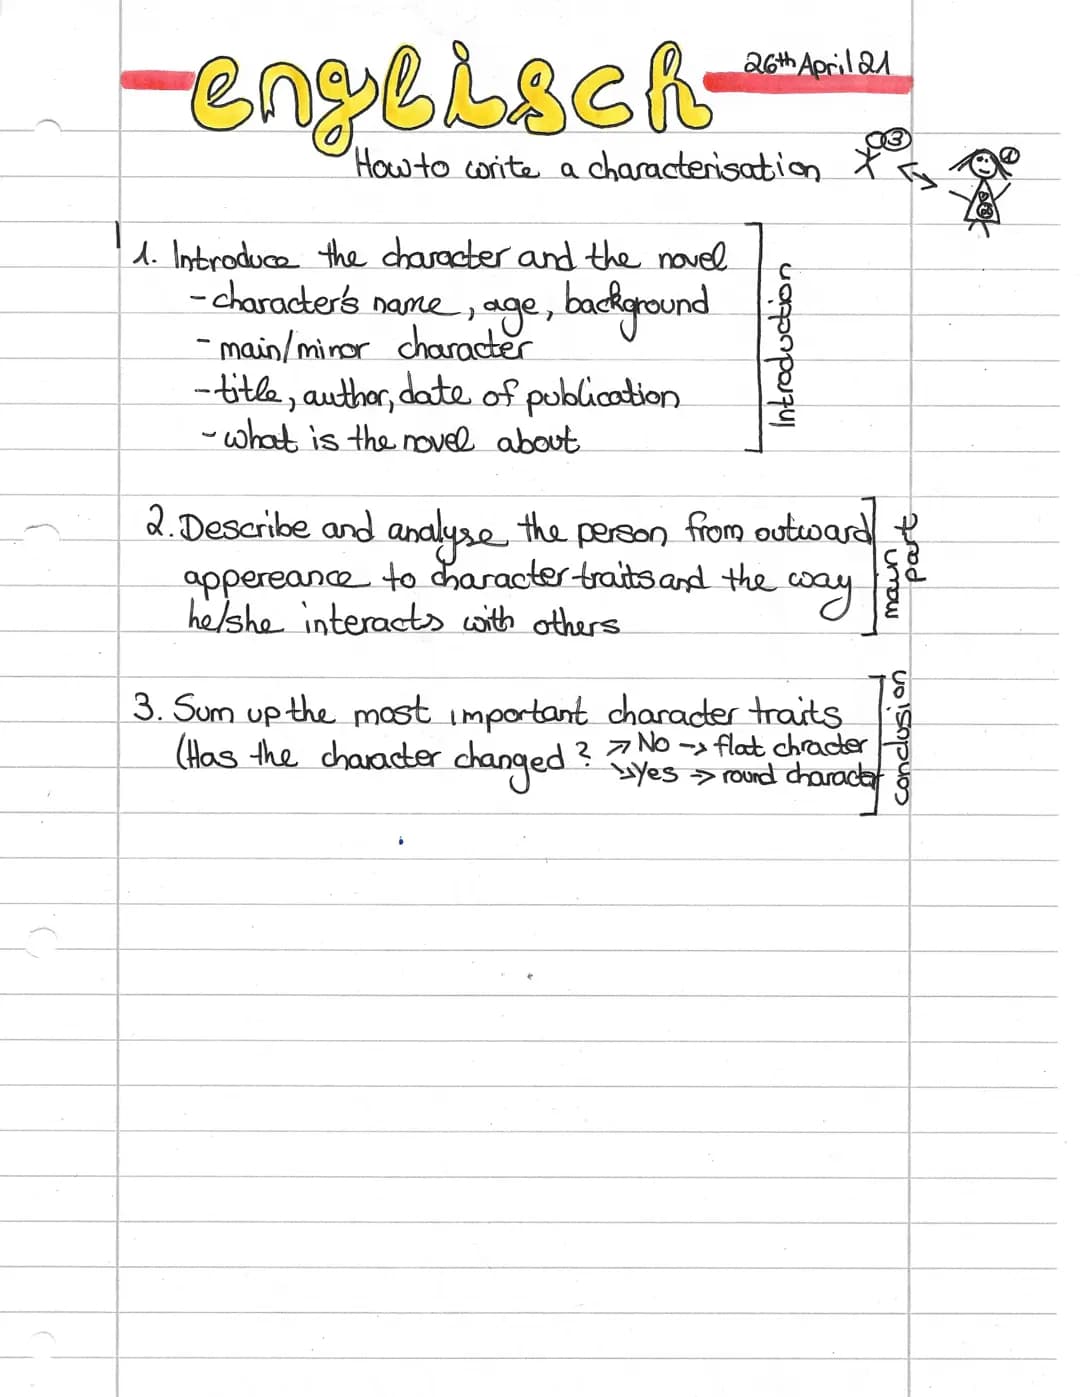 englisch
26th April 21
How to write a characterisation
1. Introduce the character and the novel
- character's name, age, background
- main/minor character
- title, author, date of publication
- what is the novel about
Introduction
2. Describe and analyse the person from outward
appereance to character traits and the way
he/she interacts with others
main
part
3. Sum up the most important character traits
(Has the character changed? ↗ No → flat chracter
↘ Yes → round character
conclusion